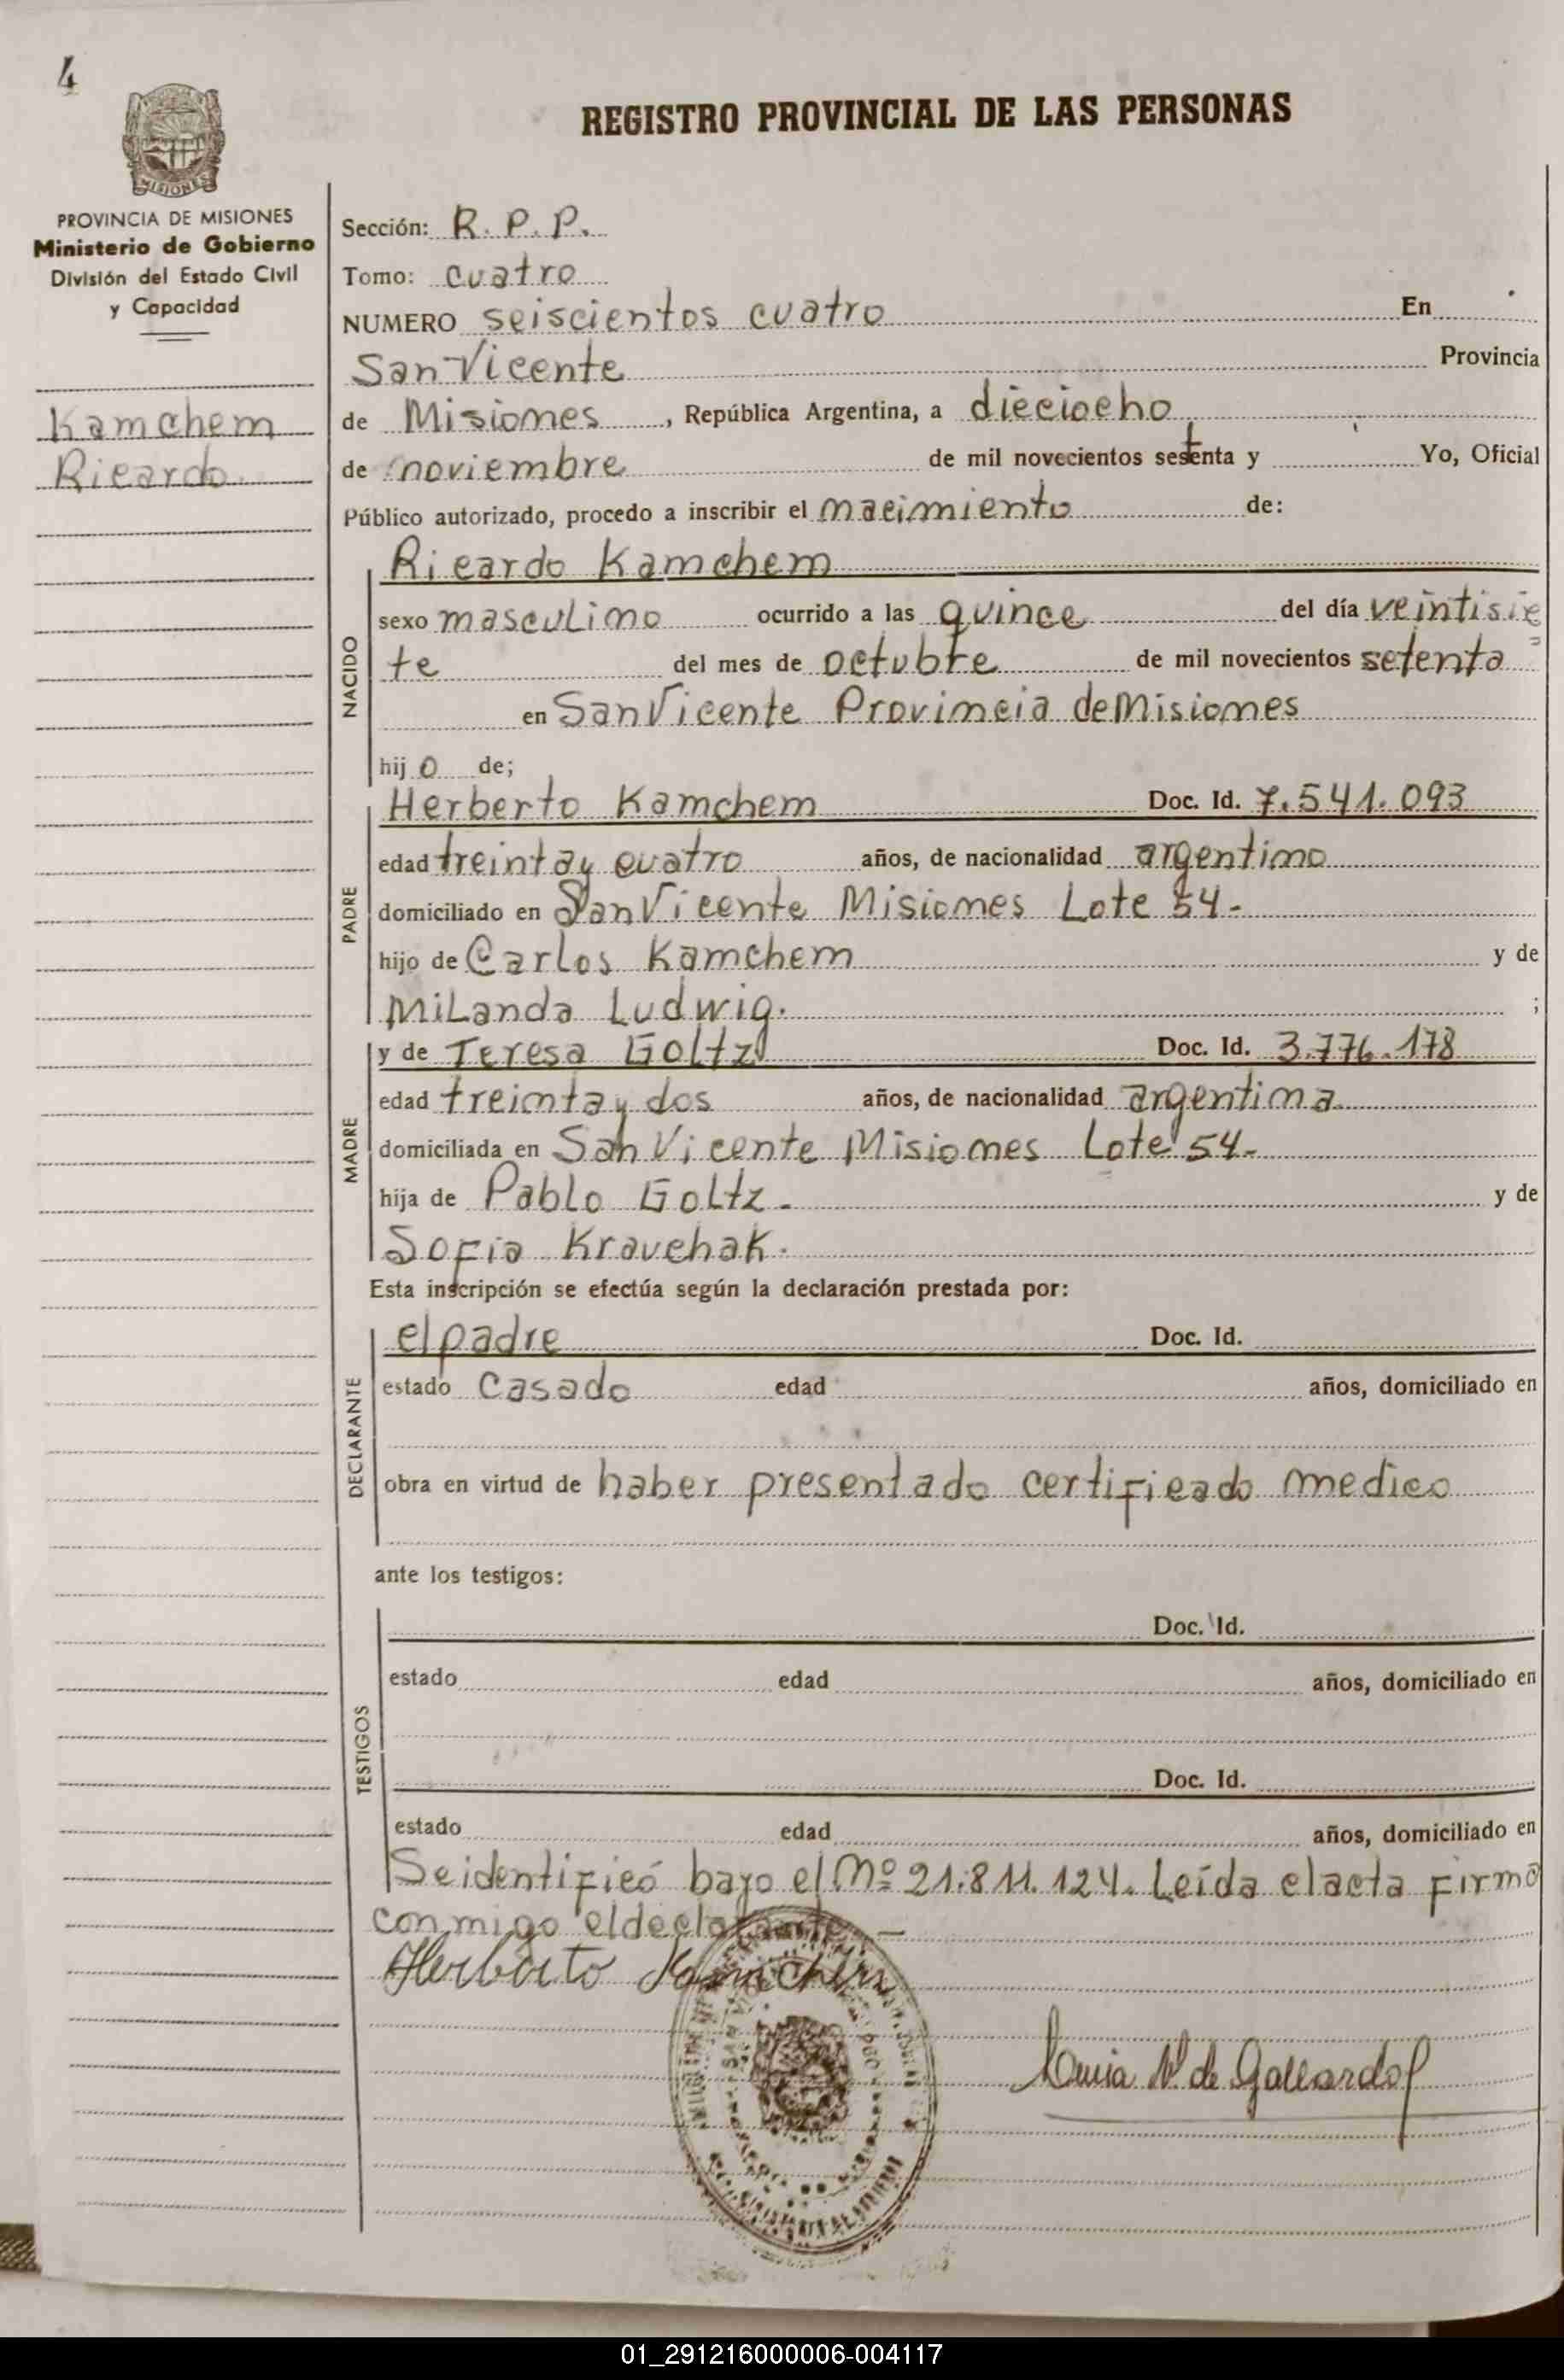 4
MISIONES
PROVINCIA DE MISIONES
Ministerio de Gobierno
División del Estado Civil
y Capacidad
Kamchem
Ricardo.
REGISTRO PROVINCIAL DE LAS PERSONAS
Sección: R. P. P.
Tomo: cuatro
NUMERO seiscientos cuatro En
San Vicente Provincia
de Misiones, República Argentina, a dieciocho
de noviembre de mil novecientos setenta y Yo, Oficial
Público autorizado, procedo a inscribir el nacimiento de:
NACIDO
Ricardo Kamchem
sexo masculino ocurrido a las quince del día veintisie
te del mes de octubre de mil novecientos setenta
en San Vicente Provincia de Misiones
hijo de;
PADRE
Herberto Kamchem Doc. Id. 7.541.093
edad treinta y cuatro años, de nacionalidad argentino
domiciliado en San Vicente Misiones Lote 54-
hijo de Carlos Kamchem y de
Milanda Ludwig. ;
MADRE
y de Teresa Goltz Doc. Id. 3.776.178
edad treinta y dos años, de nacionalidad argentina
domiciliada en San Vicente Misiones Lote 54-
hija de Pablo Goltz- y de
Sofia Kravchak.
Esta inscripción se efectúa según la declaración prestada por:
DECLARANTE
el padre Doc. Id.
estado casado edad años, domiciliado en
obra en virtud de haber presentado certificado medico
ante los testigos:
TESTIGOS
Doc. Id.
estado edad años, domiciliado en
Doc. Id.
estado edad años, domiciliado en
Se identificó bajo el Nº 21.811.124. Leída el acta firmó
conmigo el declarante —
Herberto Kamchem
de Gallardo
01_291216000006-004117